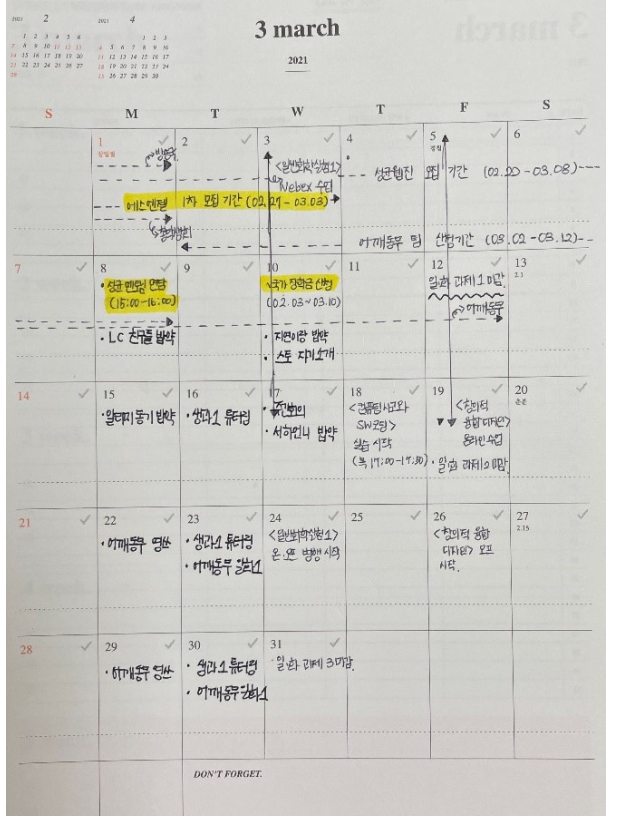 2021 2
2021 4
1 2 3 4 5 6
7 8 9 10 11 12 13
14 15 16 17 18 19 20
21 22 23 24 25 26 27
28
1 2 3
4 5 6 7 8 9 10
11 12 13 14 15 16 17
18 19 20 21 22 23 24
25 26 27 28 29 30
3 march
2021
S M T W T F S
1 2 3 4 5 6
삼일절
경칩
<일반화학실험1>
Webex 수업
성균웹진 모집 기간 (02.20-03.08)
에스엔젤 1차 모집 기간 (02.27-03.03)
어깨동무 팀 신청기간 (03.02-03.12)
7 8 9 10 11 12 13
2.1
(15:00-16:00)
국가 장학금 신청
(02.03~03.10)
일화 과제 1 마감
어깨동무
• LC 친구들 밥약
• 지연이랑 밥약
• 스토 자기소개
14 15 16 17 18 19 20
춘분
• 알티미 동기 밥약
• 생과1 튜터링
• 서하언니 밥약
<컴퓨팅사고와
SW코딩>
실습 시작
(목 17:00-17:50)
<창의적
융합디자인>
온라인 수업
• 일화 과제 2 마감
21 22 23 24 25 26 27
2.15
• 어깨동무 영쓰
• 생과1 튜터링
• 어깨동무 일화1
<일반화학실험1>
온·오프 병행 시작
<창의적 융합
디자인> 오프
시작.
28 29 30 31
• 어깨동무 영쓰
• 생과1 튜터링
• 어깨동무 일화1
• 일화 과제 3 마감
DON'T FORGET.